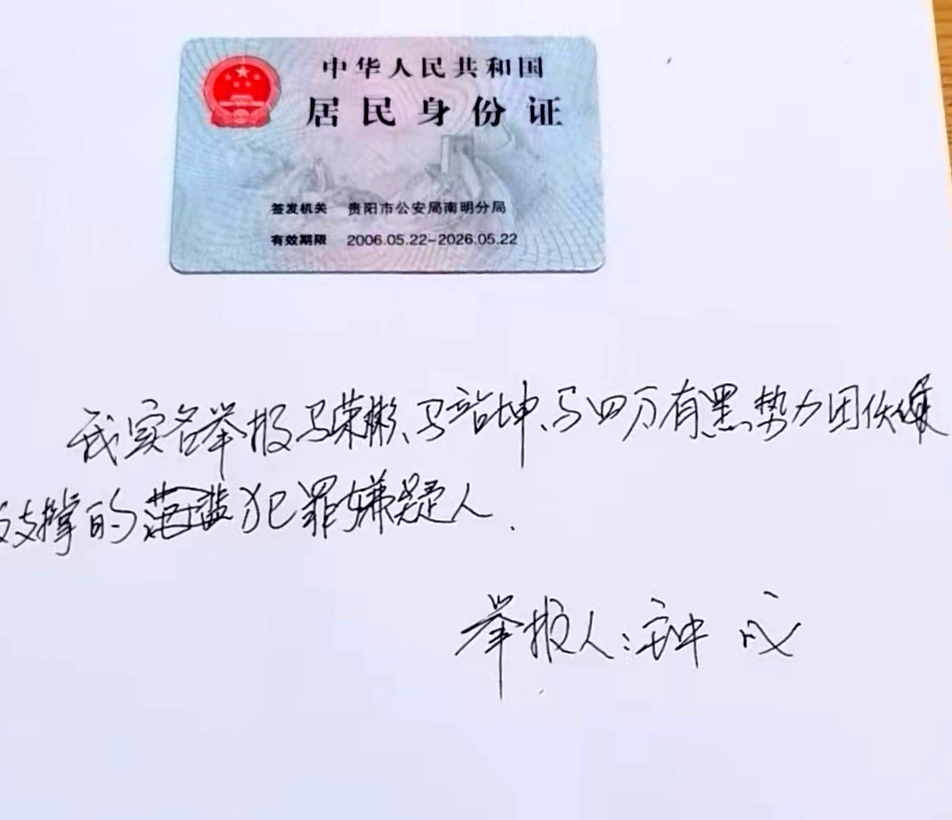 中华人民共和国
居民身份证
签发机关 贵阳市公安局南明分局
有效期限 2006.05.22-2026.05.22
我实名举报马荣彬、马 坤、马四万有黑势力团伙
支撑的 犯罪嫌疑人.
举报人: